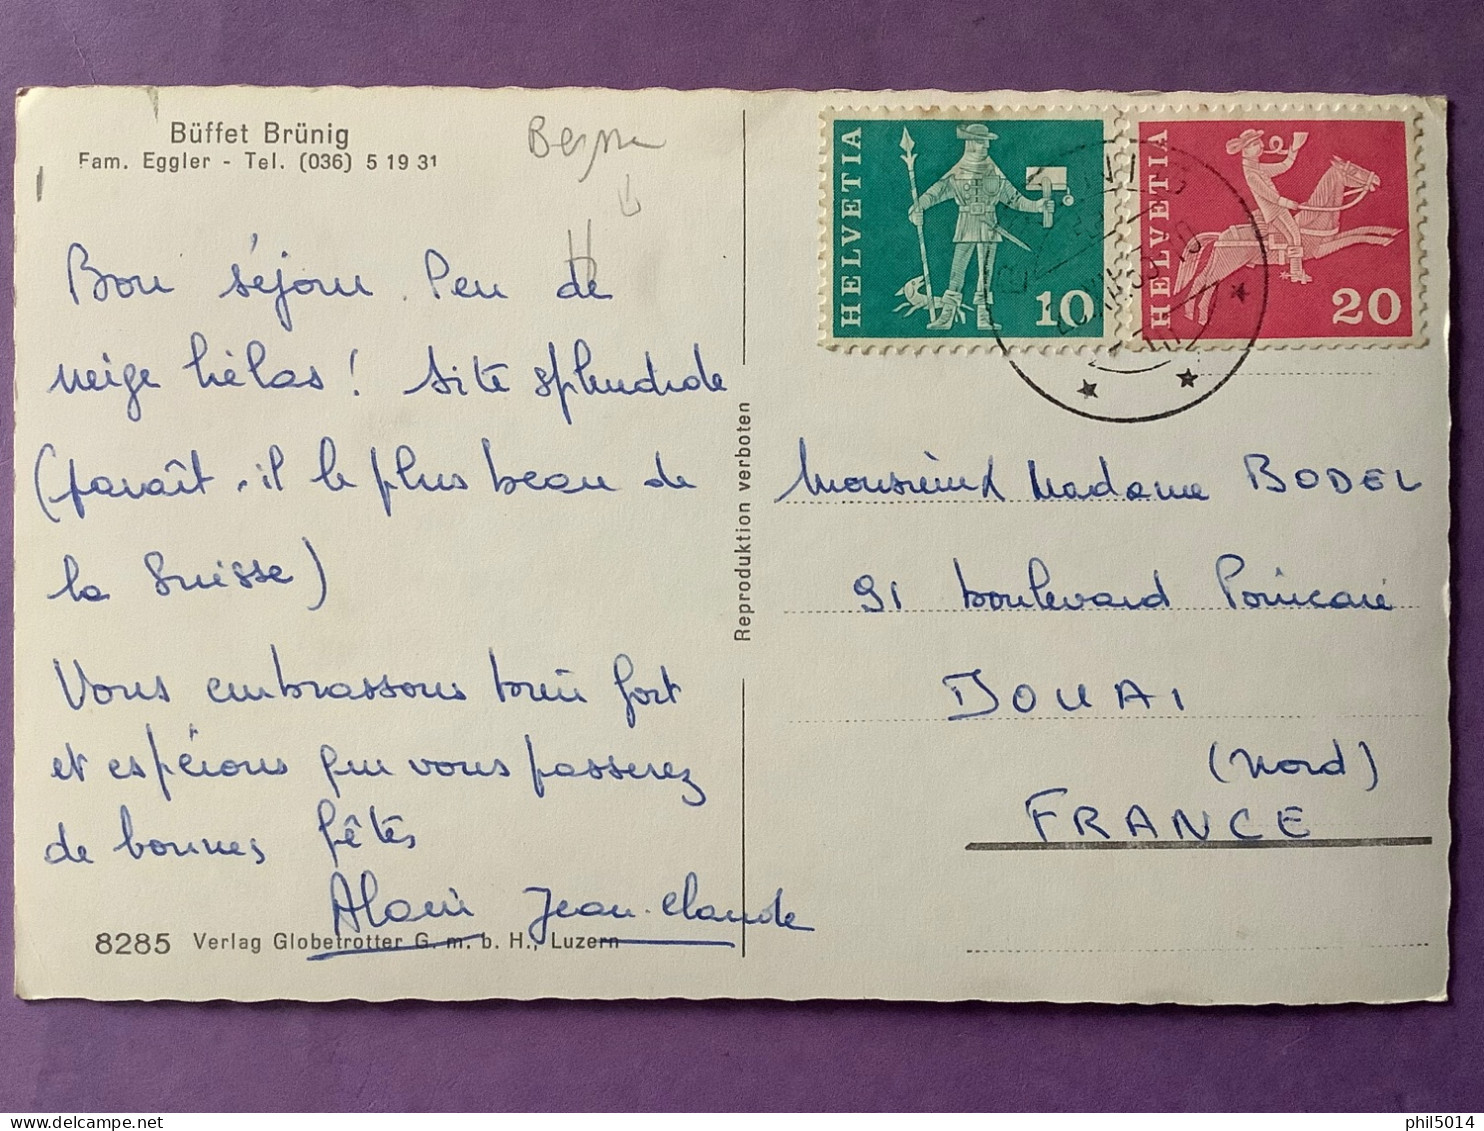 Büffet Brünig
Fam. Eggler - Tel. (036) 5 19 31
Bon séjour. Peu de
neige hélas ! Site splendide
(paraît-il le plus beau de
la Suisse)
Vous embrassons bien fort
et espérons que vous passerez
de bonnes fêtes
Alain Jean-Claude
8285 Verlag Globetrotter G. m. b. H., Luzern
Reproduktion verboten
HELVETIA 10
HELVETIA 20
Monsieur Madame BODEL
91 boulevard Poincaré
DOUAI
(Nord)
FRANCE
phil5014